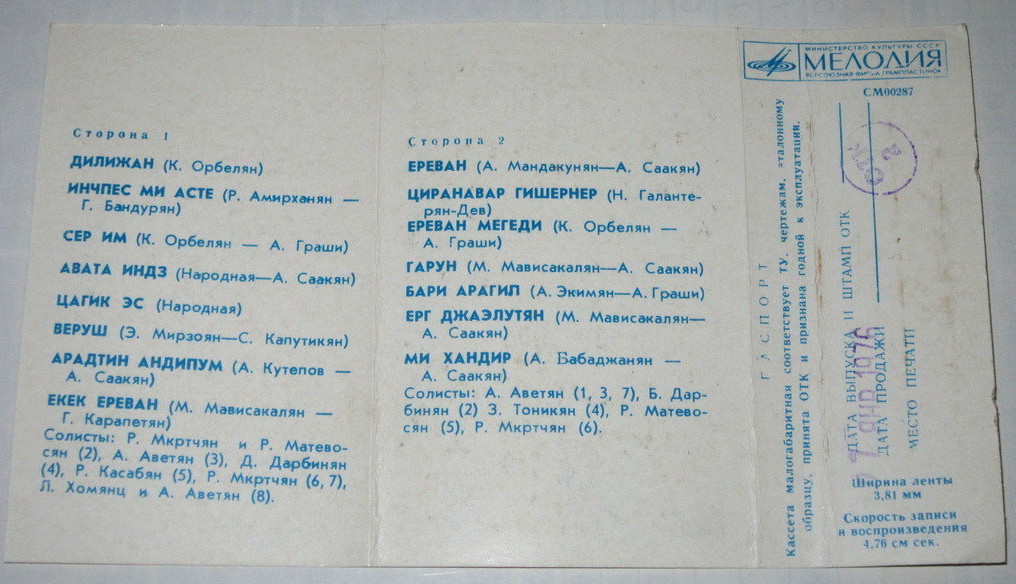 Сторона 1
ДИЛИЖАН (К. Орбелян)
ИНЧПЕС МИ АСТЕ (Р. Амирханян —
Г. Бандурян)
СЕР ИМ (К. Орбелян — А. Граши)
АВАТА ИНДЗ (Народная—А. Саакян)
ЦАГИК ЭС (Народная)
ВЕРУШ (Э. Мирзоян—С. Капутикян)
АРАДТИН АНДИПУМ (А. Кутепов —
А. Саакян)
ЕКЕК ЕРЕВАН (М. Мависакалян —
Г. Карапетян)
Солисты: Р. Мкртчян и Р. Матево-
сян (2), А. Аветян (3), Д. Дарбинян
(4), Р. Касабян (5), Р. Мкртчян (6, 7),
Л. Хомянц и А. Аветян (8).
Сторона 2
ЕРЕВАН (А. Мандакунян—А. Саакян)
ЦИРАНАВАР ГИШЕРНЕР (Н. Галанте-
рян-Дев)
ЕРЕВАН МЕГЕДИ (К. Орбелян —
А. Граши)
ГАРУН (М. Мависакалян—А. Саакян)
БАРИ АРАГИЛ (А. Экимян—А. Граши)
ЕРГ ДЖАЭЛУТЯН (М. Мависакалян—
А. Саакян)
МИ ХАНДИР (А. Бабаджанян —
А. Саакян)
Солисты: А. Аветян (1, 3, 7), Б. Дар-
бинян (2) З. Тоникян (4), Р. Матево-
сян (5), Р. Мкртчян (6).
МИНИСТЕРСТВО КУЛЬТУРЫ СССР
МЕЛОДИЯ
ВСЕСОЮЗНАЯ ФИРМА ГРАМПЛАСТИНОК
СМ00287
ПАСПОРТ
Кассета малогабаритная соответствует ТУ, чертежам, эталонному
образцу, принята ОТК и признана годной к эксплуатации.
ДАТА ВЫПУСКА И ШТАМП ОТК
ОТК 2
7 ЯНВ 1976
ДАТА ПРОДАЖИ
МЕСТО ПЕЧАТИ
Ширина ленты
3,81 мм
Скорость записи
и воспроизведения
4,76 см сек.